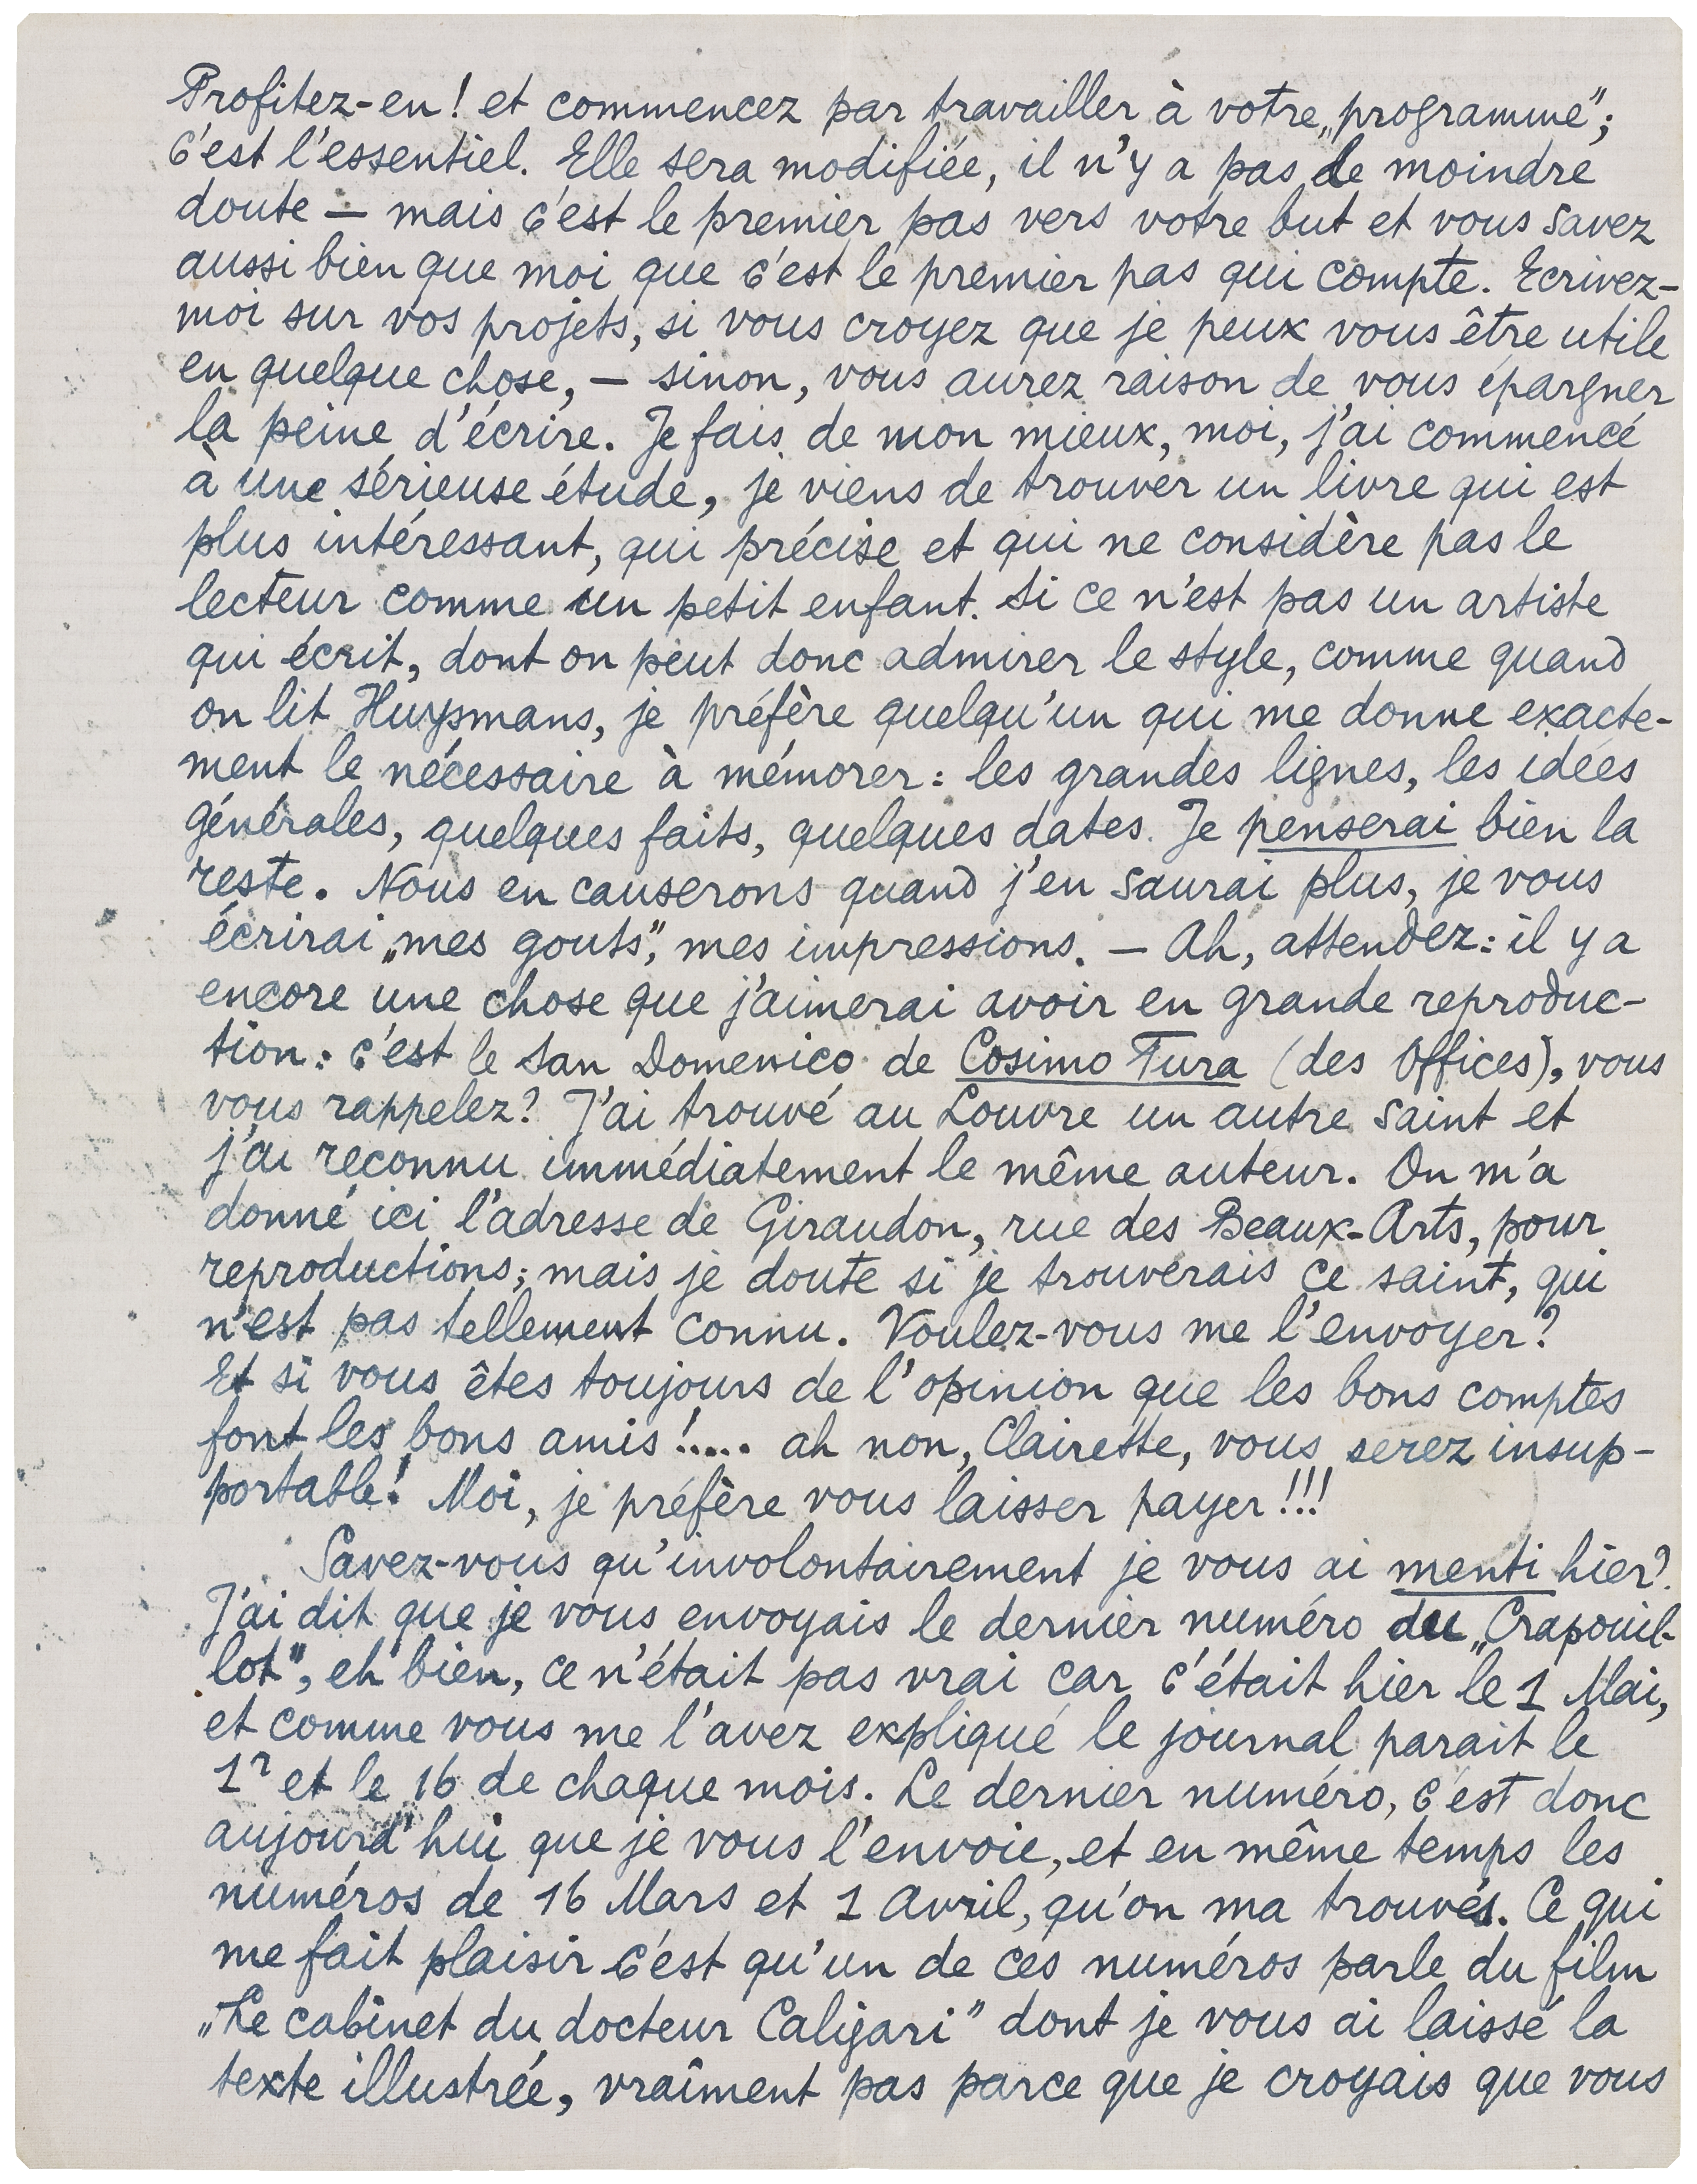 Profitez-en! et commencez par travailler à votre „programme";
c'est l'essentiel. Elle sera modifiée, il n'y a pas le moindre
doute — mais c'est le premier pas vers votre but et vous savez
aussi bien que moi que c'est le premier pas qui compte. Ecrivez-
moi sur vos projets, si vous croyez que je peux vous être utile
en quelque chose, — sinon, vous aurez raison de vous épargner
la peine d'écrire. Je fais de mon mieux, moi, j'ai commencé
à une sérieuse étude, je viens de trouver un livre qui est
plus intéressant, qui précise et qui ne considère pas le
lecteur comme un petit enfant. Si ce n'est pas un artiste
qui écrit, dont on peut donc admirer le style, comme quand
on lit Huysmans, je préfère quelqu'un qui me donne exacte-
ment le nécessaire à mémorer: les grandes lignes, les idées
générales, quelques faits, quelques dates. Je penserai bien la
reste. Nous en causerons quand j'en saurai plus, je vous
écrirai „mes gouts", mes impressions. — Ah, attendez: il y a
encore une chose que j'aimerai avoir en grande reproduc-
tion: c'est le San Domenico de Cosimo Tura (des Offices), vous
vous rappelez? J'ai trouvé au Louvre un autre saint et
j'ai reconnu immédiatement le même auteur. On m'a
donné ici l'adresse de Giraudon, rue des Beaux-Arts, pour
reproductions; mais je doute si je trouverais ce saint, qui
n'est pas tellement connu. Voulez-vous me l'envoyer?
Et si vous êtes toujours de l'opinion que les bons comptes
font les bons amis!.... ah non, Clairette, vous serez insup-
portable! Moi, je préfère vous laisser payer!!!
Savez-vous qu'involontairement je vous ai menti hier?
J'ai dit que je vous envoyais le dernier numéro du „Crapouil-
lot", eh bien, ce n'était pas vrai car c'était hier le 1 Mai,
et comme vous me l'avez expliqué le journal parait le
1r et le 16 de chaque mois. Le dernier numéro, c'est donc
aujourd'hui que je vous l'envoie, et en même temps les
numéros de 16 Mars et 1 Avril, qu'on ma trouvés. Ce qui
me fait plaisir c'est qu'un de ces numéros parle du film
„Le cabinet du docteur Caligari" dont je vous ai laissé la
texte illustrée, vraîment pas parce que je croyais que vous